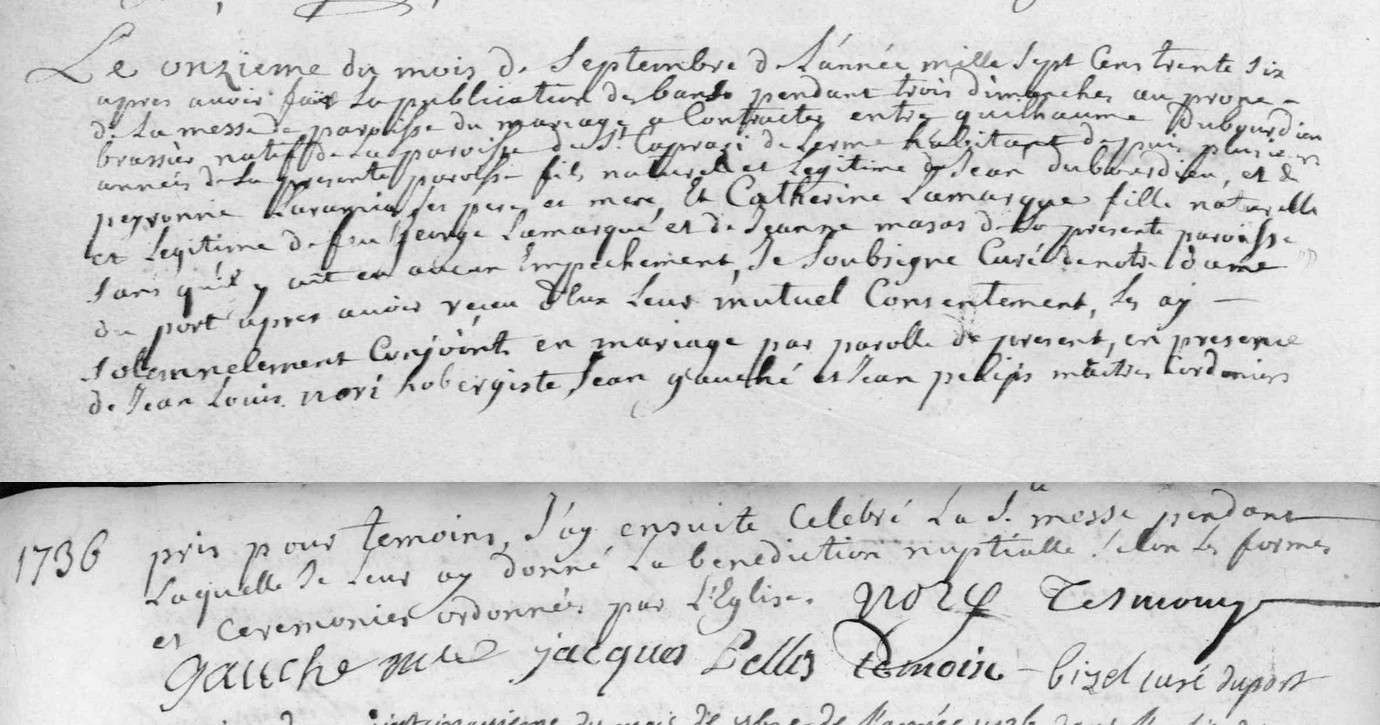 Le onzieme du mois de Septembre de L'année mille sept Cens trente six
apres avoir fait La publication des bans pendant trois dimanches au prone
de La messe de paroisse du mariage a Contracter entre guilhaume Dubourdieu
brassier natif de La paroisse de St. Caprasi de Lerme habitant depuis plusieurs
années de La presente paroisse fils naturel et Legitime de Jean dubourdieu, et de
peyronne ses pere et mere, Et Catherine Lamarque fille naturelle
et Legitime de feu George Lamarque et de Jeanne masas de La presente paroisse
sans qu'il y ait eu aucun Empechement, Je soubsigné Curé de notre dame
du port apres avoir receu d'Eux Leur mutuel Consentement, Les ay —
solemnelement Conjoints en mariage par parolle de present, en presence
de Jean Louis nori hobergiste, Jean gauché et Jean maitres Cordoniers
1736 pris pour temoins, J'ay ensuite Celebré La Ste. messe pendant
Laquelle Je Leur ay donné La benediction nuptialle selon Les formes
et ceremonies ordonnées par L'Eglise. nory Tesmoing
gauche jacques Temoin — bizel curé du port